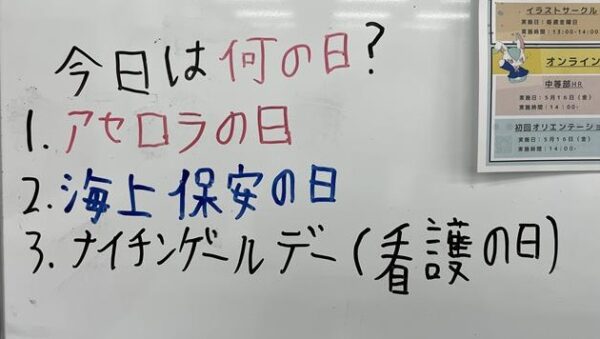 今日は何の日?
1. アセロラの日
2. 海上保安の日
3. ナイチンゲールデー(看護の日)
イラストサークル
実施日:毎週金曜日
実施時間:13:00-14:00
オンライン
中等部HR
実施日:5月16日(金)
実施時間:14:00-
初回オリエンテーショ
実施日:5月16日(金)
実施時間:14:00-